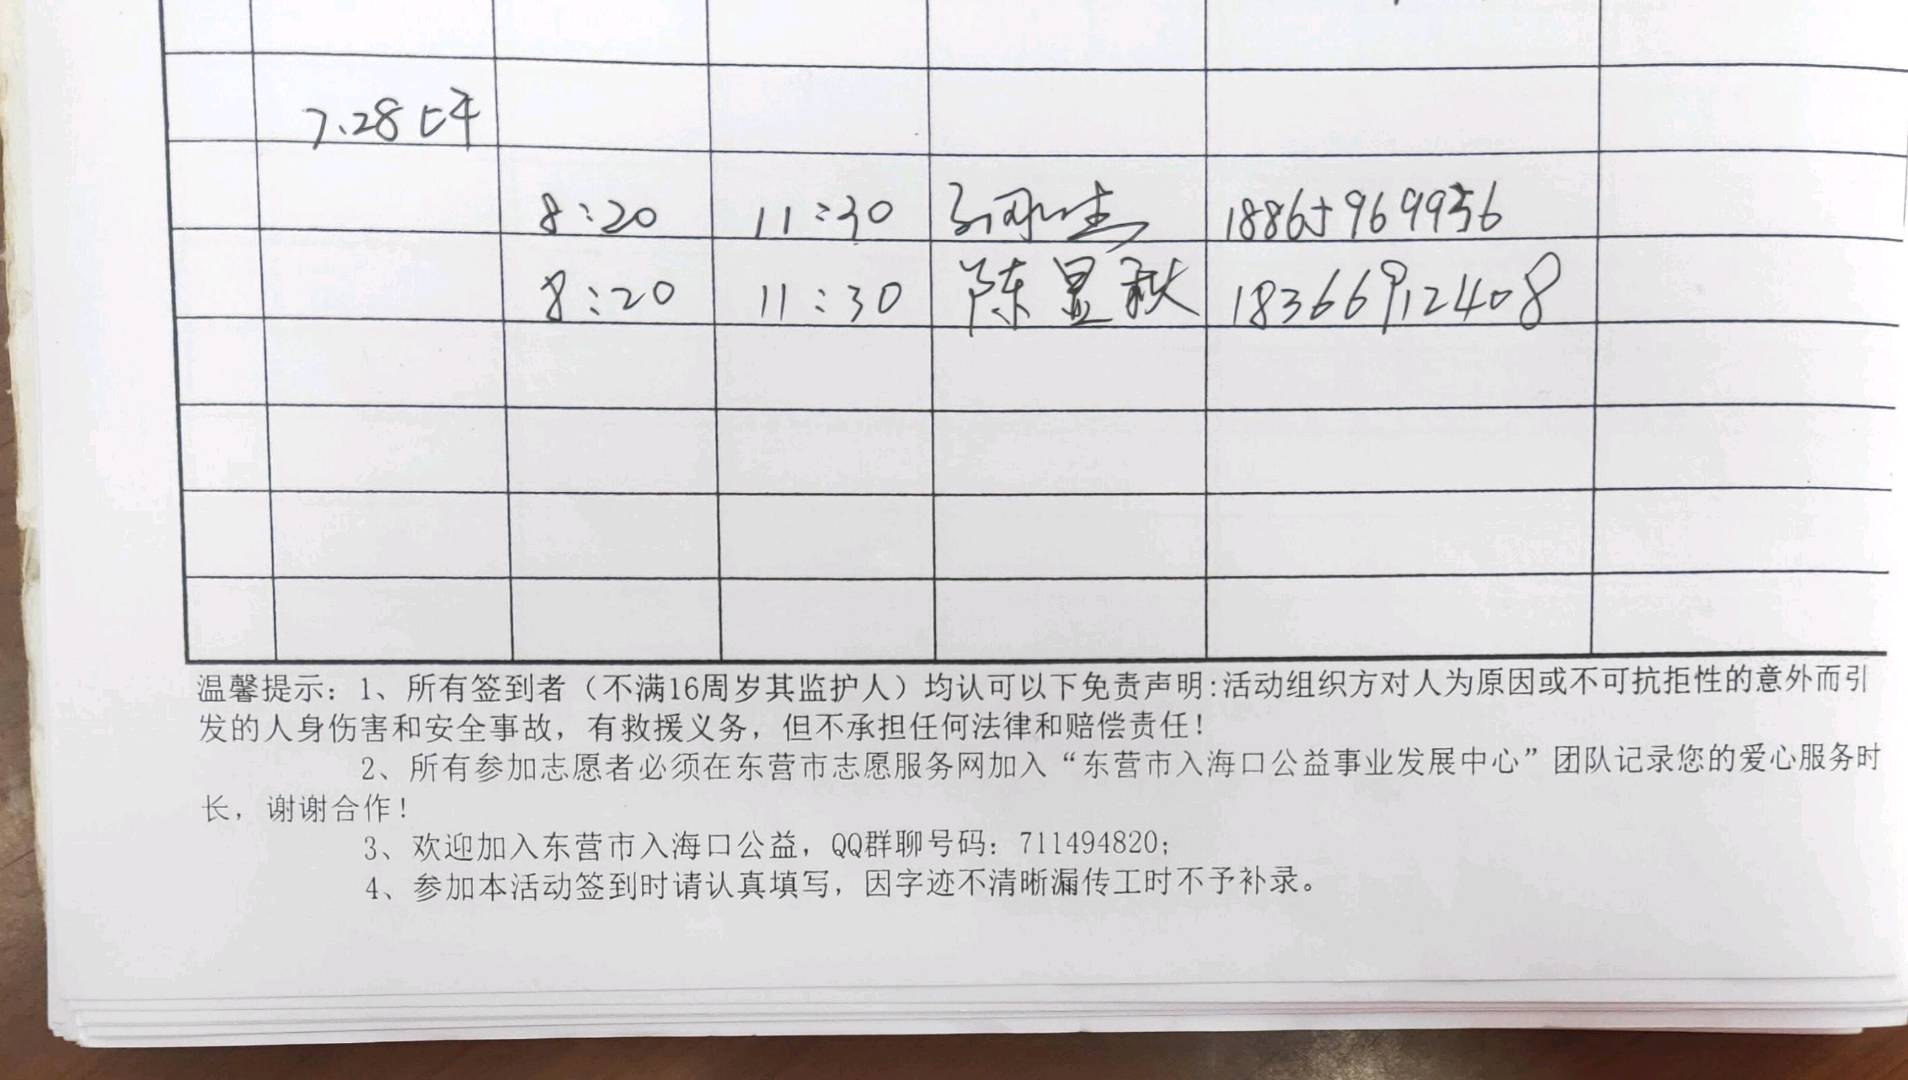 7.28上午
8:20 11:30 18865969956
8:20 11:30 陈显秋 18366912408
温馨提示：1、所有签到者（不满16周岁其监护人）均认可以下免责声明:活动组织方对人为原因或不可抗拒性的意外而引
发的人身伤害和安全事故，有救援义务，但不承担任何法律和赔偿责任！
2、所有参加志愿者必须在东营市志愿服务网加入“东营市入海口公益事业发展中心”团队记录您的爱心服务时
长，谢谢合作！
3、欢迎加入东营市入海口公益，QQ群聊号码：711494820；
4、参加本活动签到时请认真填写，因字迹不清晰漏传工时不予补录。